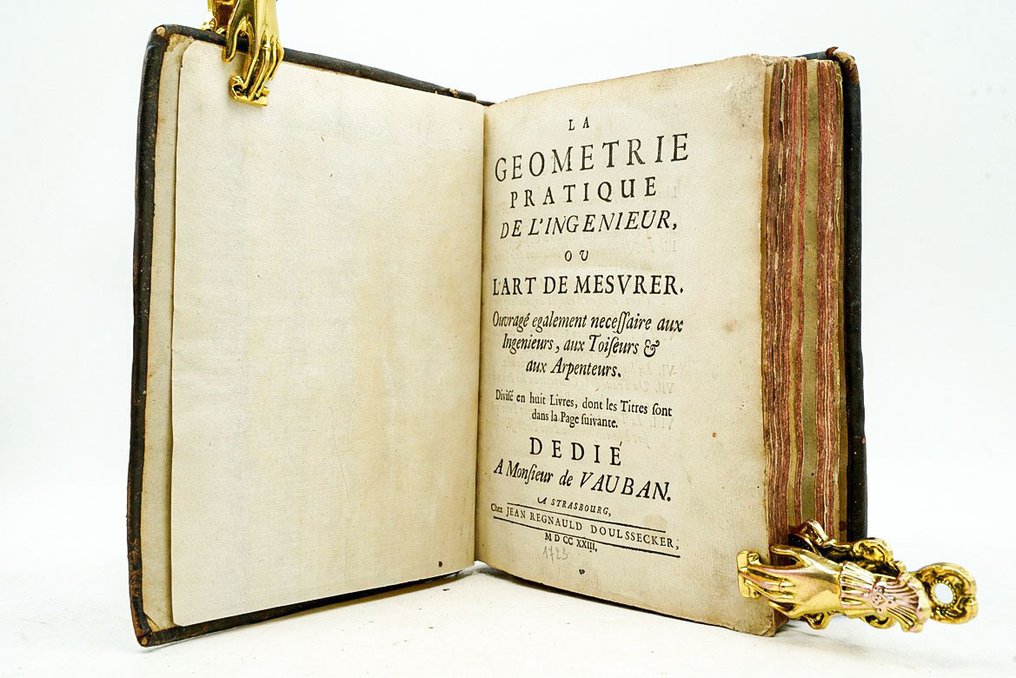 LA
GEOMETRIE
PRATIQUE
DE L'INGENIEUR,
OU
L'ART DE MESVRER.
Ouvragé egalement neceſſaire aux
Ingenieurs, aux Toiſeurs &
aux Arpenteurs.
Diviſé en huit Livres, dont les Titres ſont
dans la Page ſuivante.
DEDIÉ
A Monſieur de VAUBAN.
A STRASBOURG,
Chez JEAN REGNAULD DOULSSECKER,
M D CC XXIII.
1723